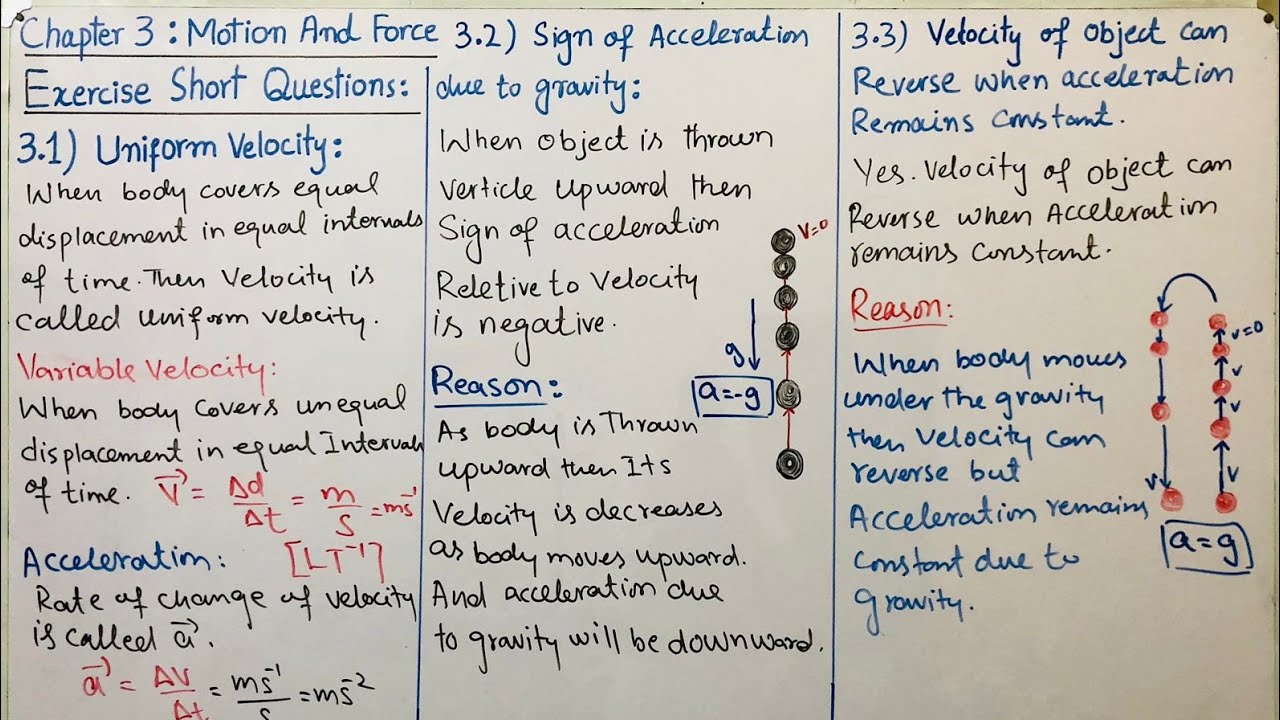 Chapter 3 : Motion And Force
Exercise Short Questions:
3.1) Uniform Velocity:
When body covers equal
displacement in equal intervals
of time. Then Velocity is
called uniform velocity.
Variable Velocity:
When body Covers unequal
displacement in equal Intervals
of time. V⃗ = Δd/Δt = m/s = ms⁻¹
[LT⁻¹]
Acceleration:
Rate of change of velocity
is called a⃗.
a⃗ = ΔV/Δt = ms⁻¹/s = ms⁻²
3.2) Sign of Acceleration
due to gravity:
When object is thrown
verticle upward then
Sign of acceleration
Reletive to Velocity
is negative.
V=0
g
a=-g
Reason:
As body is Thrown
upward then Its
Velocity is decreases
as body moves upward.
And acceleration due
to gravity will be downward.
3.3) Velocity of object can
Reverse when acceleration
Remains Constant.
Yes. Velocity of object can
Reverse when Acceleration
remains Constant.
Reason:
When body moves
under the gravity
then velocity can
reverse but
Acceleration remains
Constant due to
gravity.
v=0
v
v
v
v
v
a=g